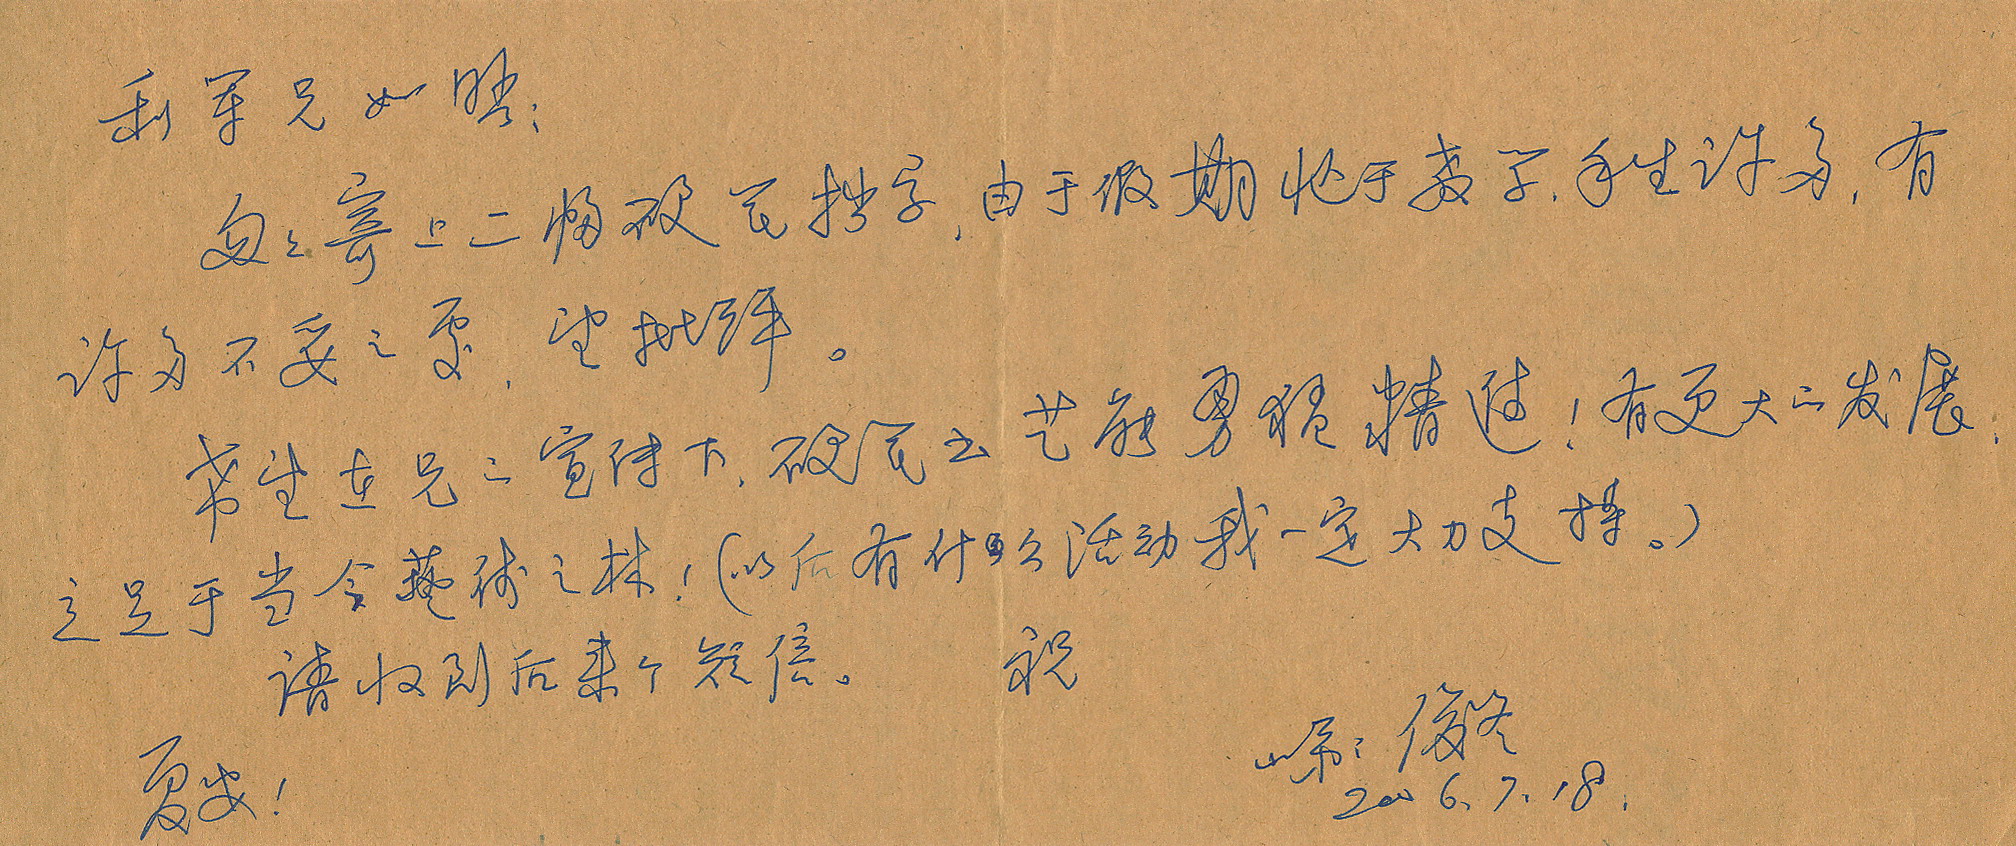 利军兄如晤：
匆匆寄上二幅硬笔拙字，由于假期忙于教学，手生许多，有
许多不妥之处，望批评。
希望在兄之宣传下，硬笔书艺能勇猛精进！有更大的发展，
立足于当今藝術之林！（以后有什么活动我一定大力支持。）
请收到后来个短信。 祝
俊冬
夏安！
2006.7.18.